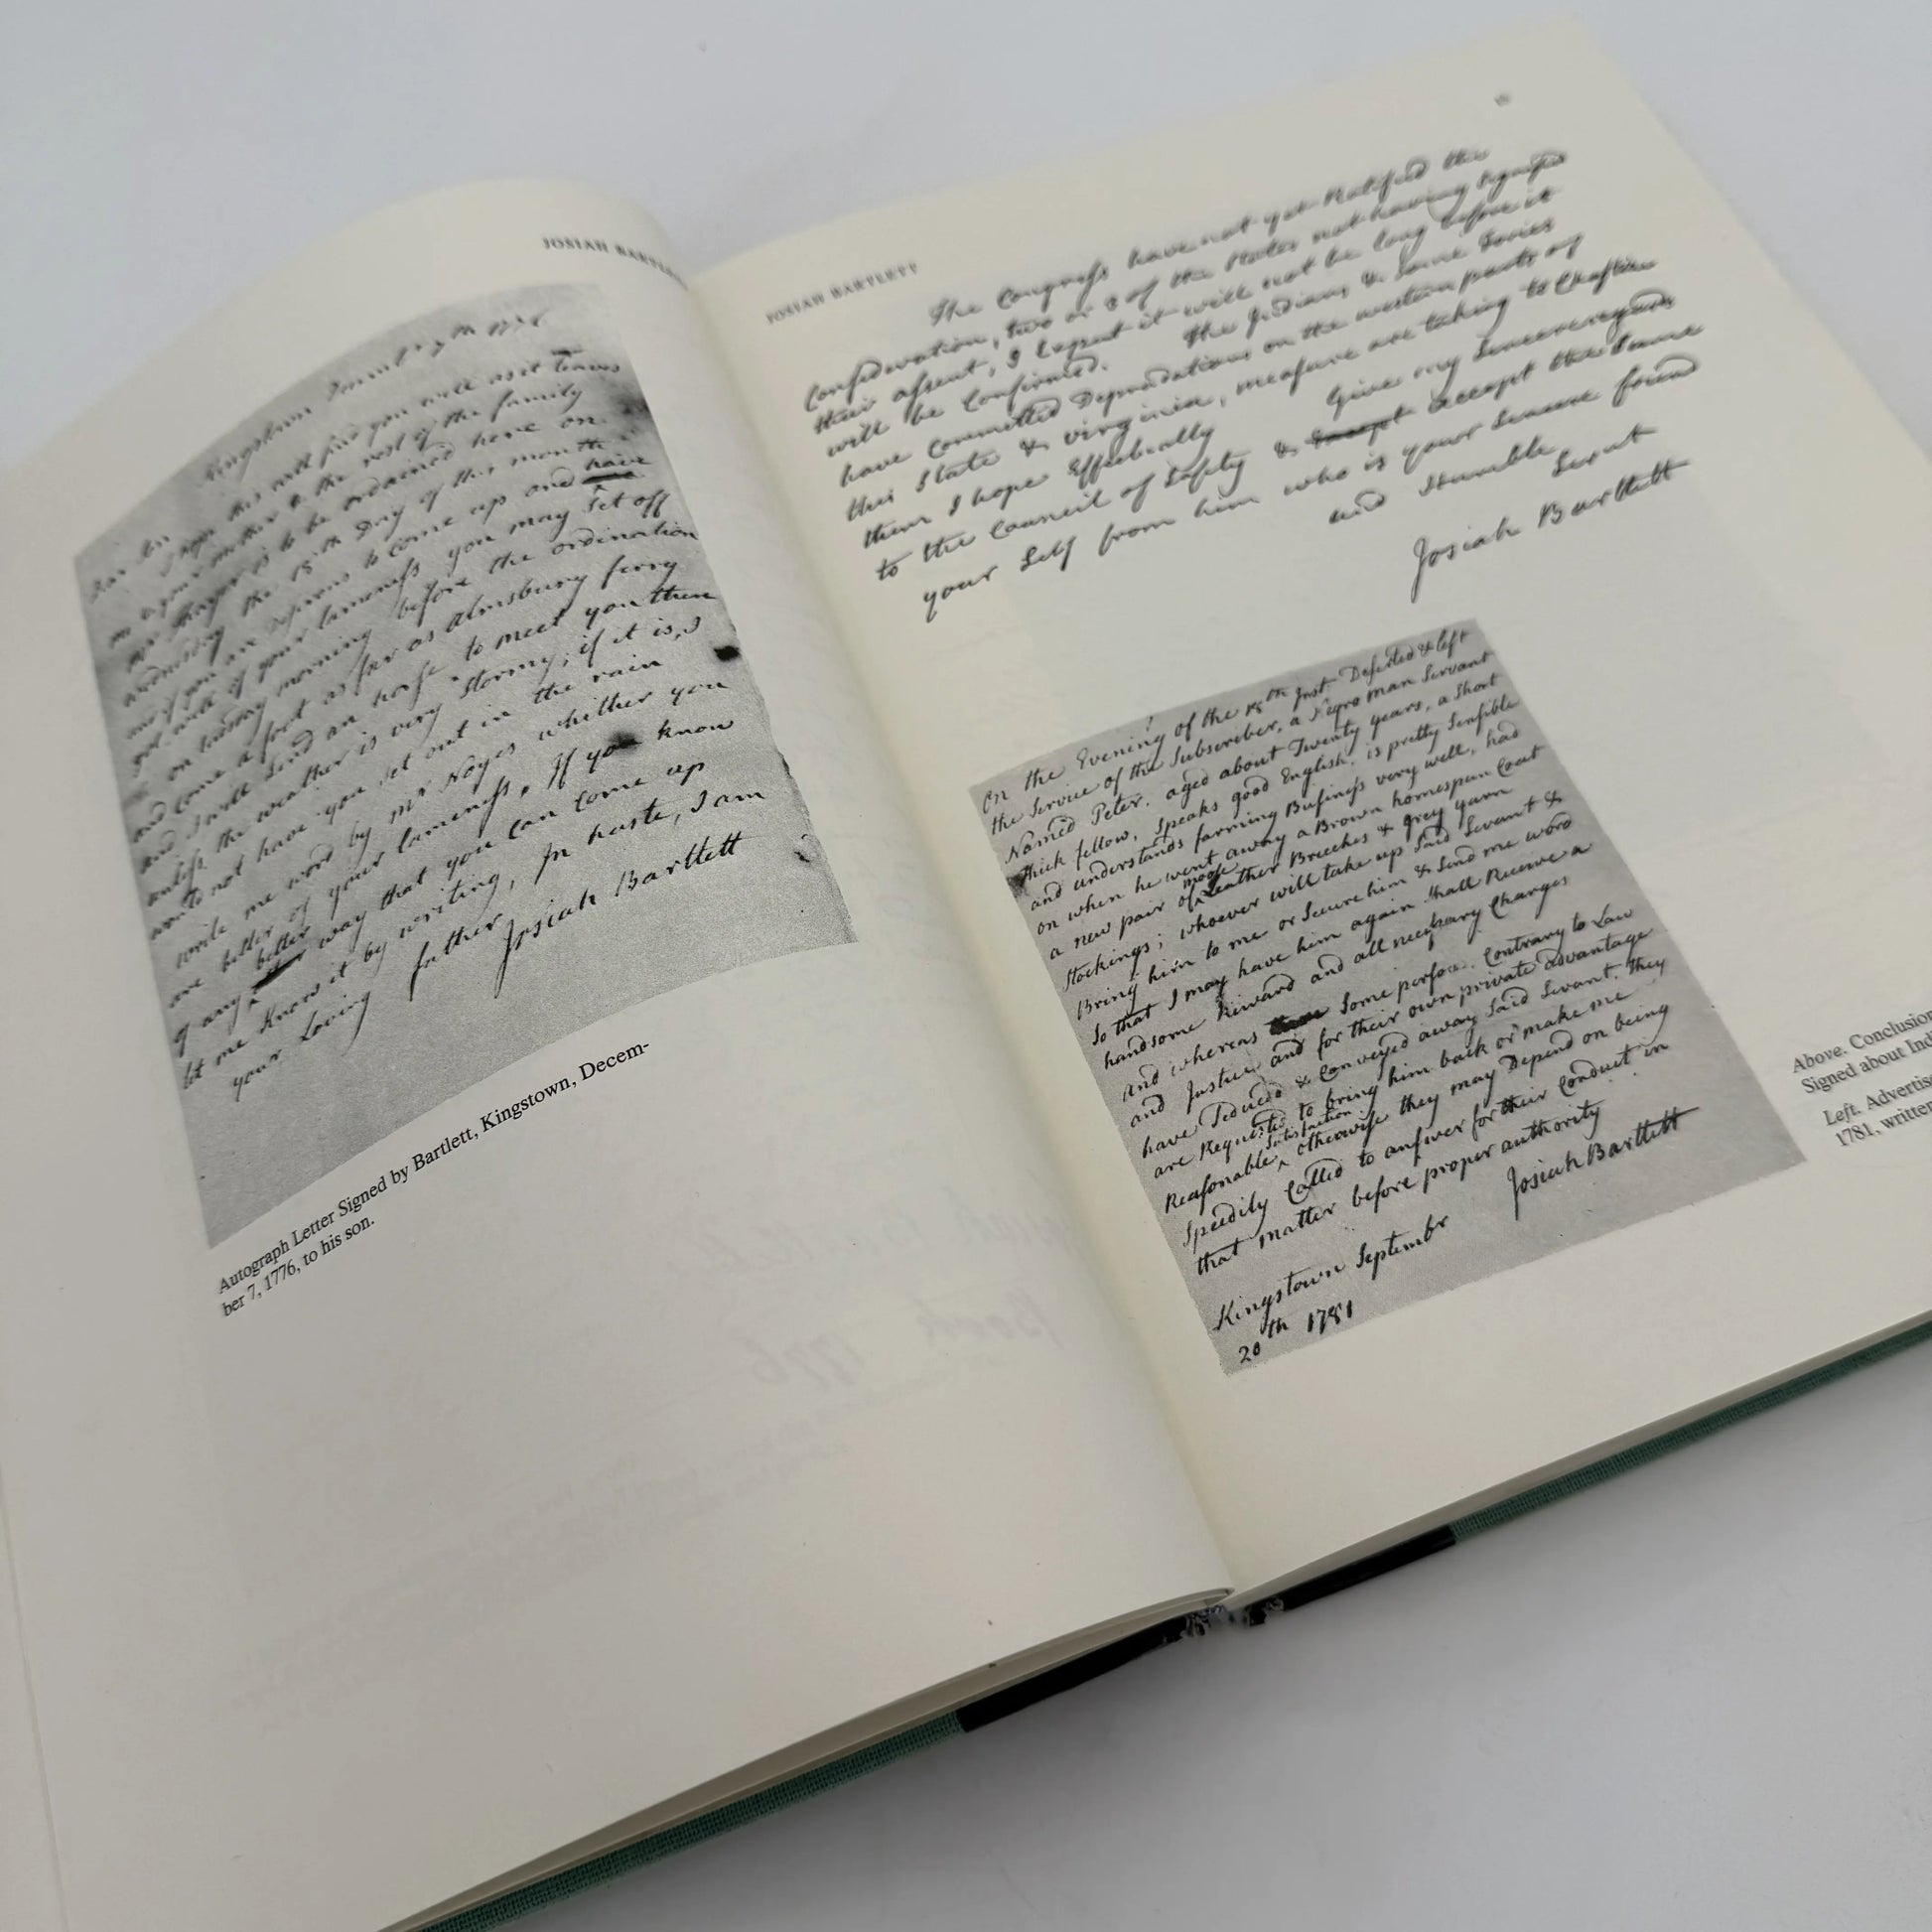 JOSIAH BARTLETT
Kingstown Decembr 7th 1776
Dear Son
I hope this will find you well as it leaves
me & your mother & the rest of the family
Mr Thayer is to be ordained here on
wednesday the 18th Day of this month
and if you are Desirous to come up and have
got well of your lameness you may set off
on tuesday morning before the ordination
and come a foot as far as Almsbury ferry
and I will send an horse to meet you then
unless the weather is very stormy; if it is, I
would not have you set out in the rain
write me word by mr Noyes whither you
are better of your lameness, If you know
of any better way that you can come up
let me know it by writing, In haste, I am
your Loving father
Josiah Bartlett
Autograph Letter Signed by Bartlett, Kingstown, Decem-
ber 7, 1776, to his son.
JOSIAH BARTLETT
The Congress have not yet Ratified the
Confederation, two or 3 of the States not having Signified
their assent, I Expect it will not be long before it
will be Confirmed. The Indians & Some Tories
have Committed Depradations on the western parts of
this State & Virginia, measure are taking to Chastise
them I hope Effectually Give my Sincere regards
to the Council of Safety & accept the Same
your Self from him who is your Sincere friend
and Humble Servt
Josiah Bartlett
On the Evening of the 18th Inst. Deserted & left
the Service of the Subscriber, a Negro man Servant
Named Peter. aged about Twenty years, a Short
thick fellow, Speaks good English, is pretty Sensible
and understands farming Business very well, had
on when he went away a Brown homespun Coat
a new pair of moose Leather Breeches & grey yarn
Stockings; whoever will take up said Servant &
Bring him to me or Secure him & Send me word
So that I may have him again Shall Receive a
handsome Reward and all necessary Charges
And whereas Some persons. Contrary to Law
and Justice and for their own private advantage
have Seduced & Conveyed away Said Servant. They
are Requested to bring him back or make me
Reasonable Satisfaction, otherwise they may Depend on being
Speedily Called to answer for their Conduct in
that matter before proper authority
Josiah Bartlett
Kingstown Septembr
20th 1781
Above. Conclusion
Signed about Ind
Left. Advertis
1781, written